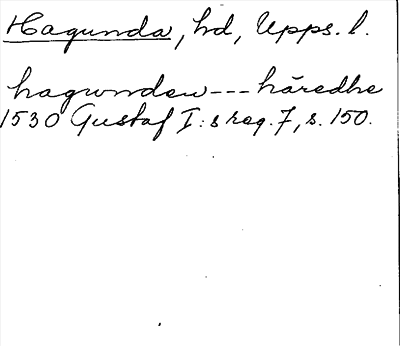 Hagunda, hd, Upps. l.
hagunden---häredhe
1530 Gustaf I:s reg. 7, s. 150.